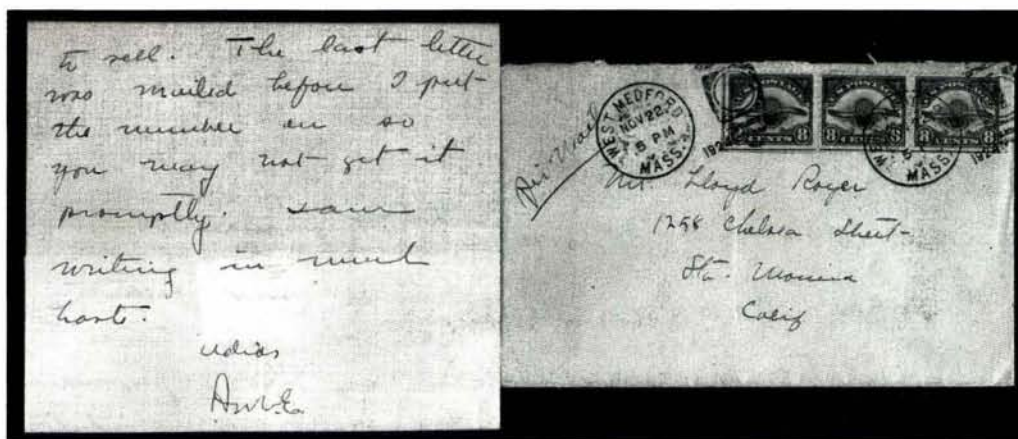 to sell. The last letter
was mailed before I put
the number on so
you may not get it
promptly. I am
writing in much
haste.
adios
Air Mail
WEST MEDFORD
NOV 22
5 PM
MASS.
8 8 8 8
MASS.
Mr. Lloyd Royer
1258 Chelsea Street
Sta. Monica
Calif